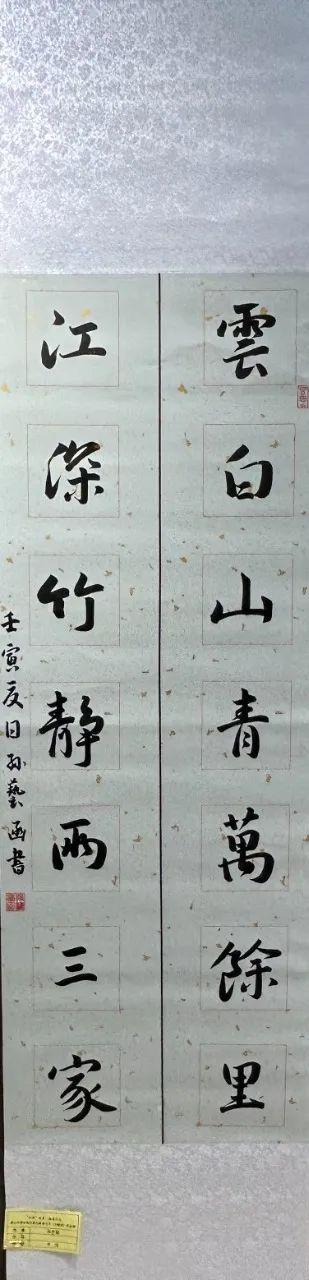 雲白山青萬餘里
江深竹靜兩三家
壬寅夏日孙藝函書